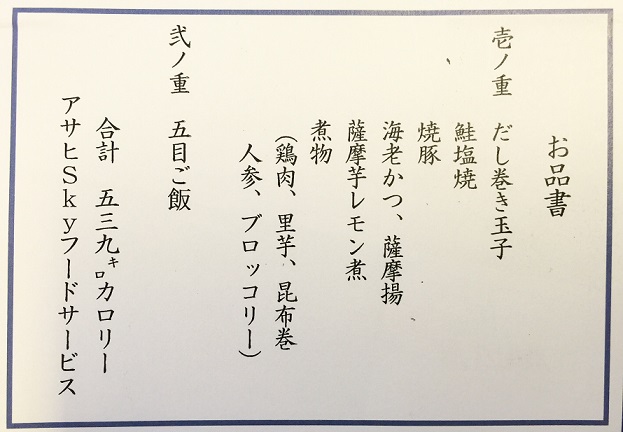 お品書
壱ノ重　だし巻き玉子
鮭塩焼
焼豚
海老かつ、薩摩揚
薩摩芋レモン煮
煮物
（鶏肉、里芋、昆布巻
人参、ブロッコリー）
弐ノ重　五目ご飯
合計　五三九㌔カロリー
アサヒＳｋｙフードサービス